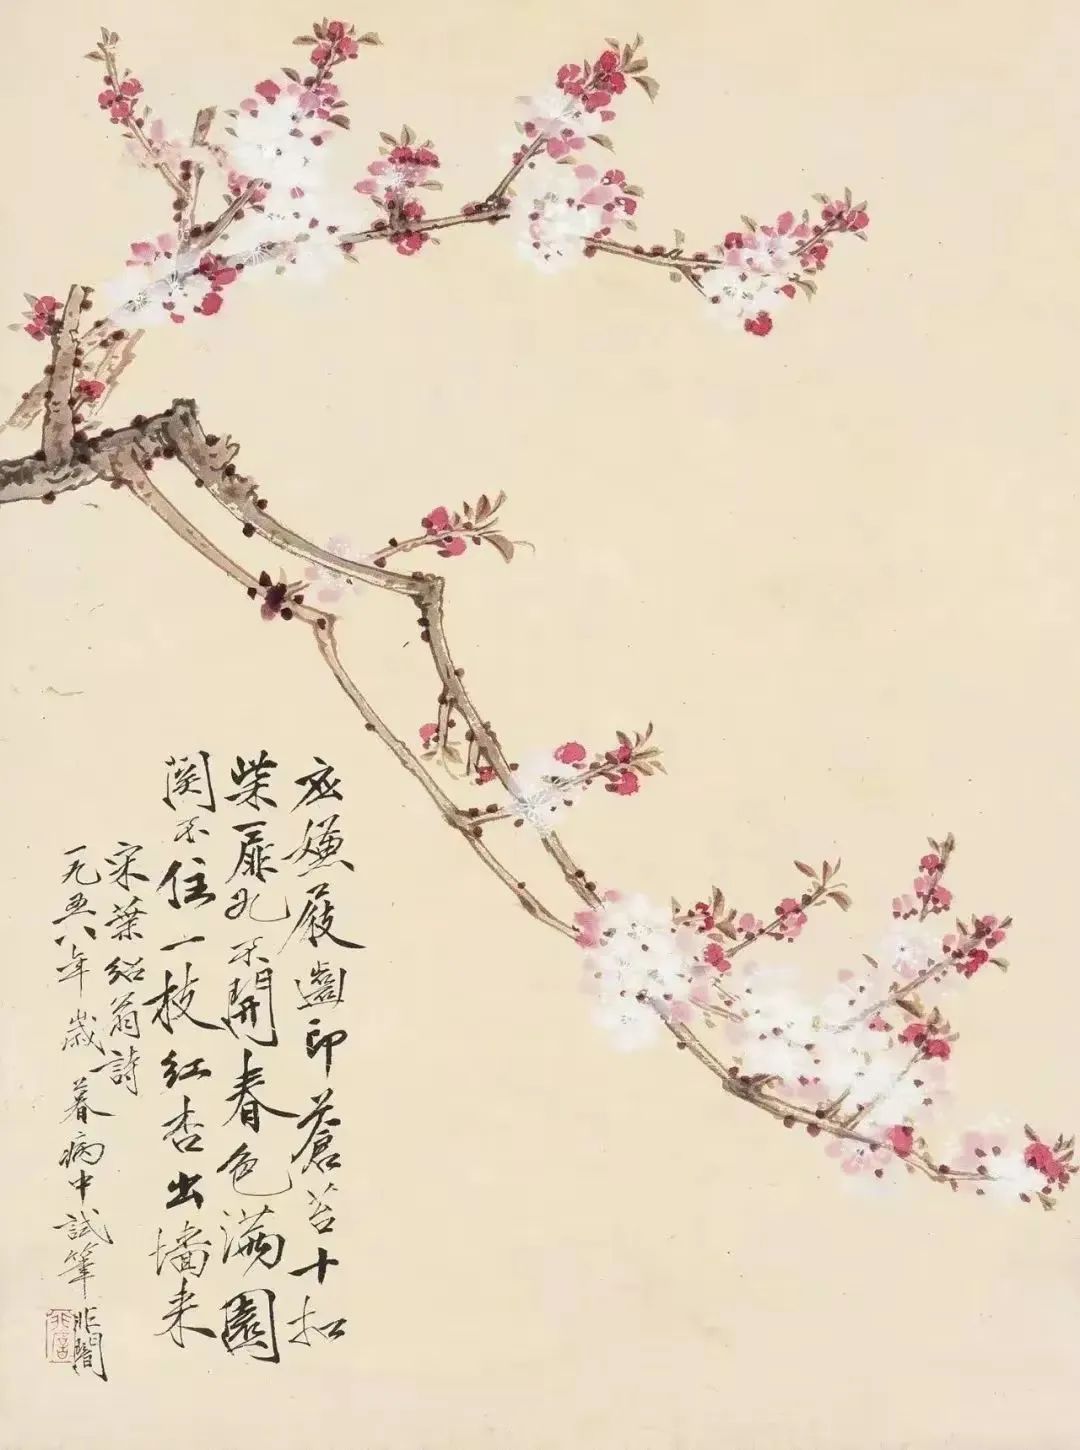 应嫌屐齒印蒼苔十扣
柴扉九不開春色滿園
関不住一枝红杏出墙来
宋葉紹翁詩
一九五八年歲暮病中試筆非闇